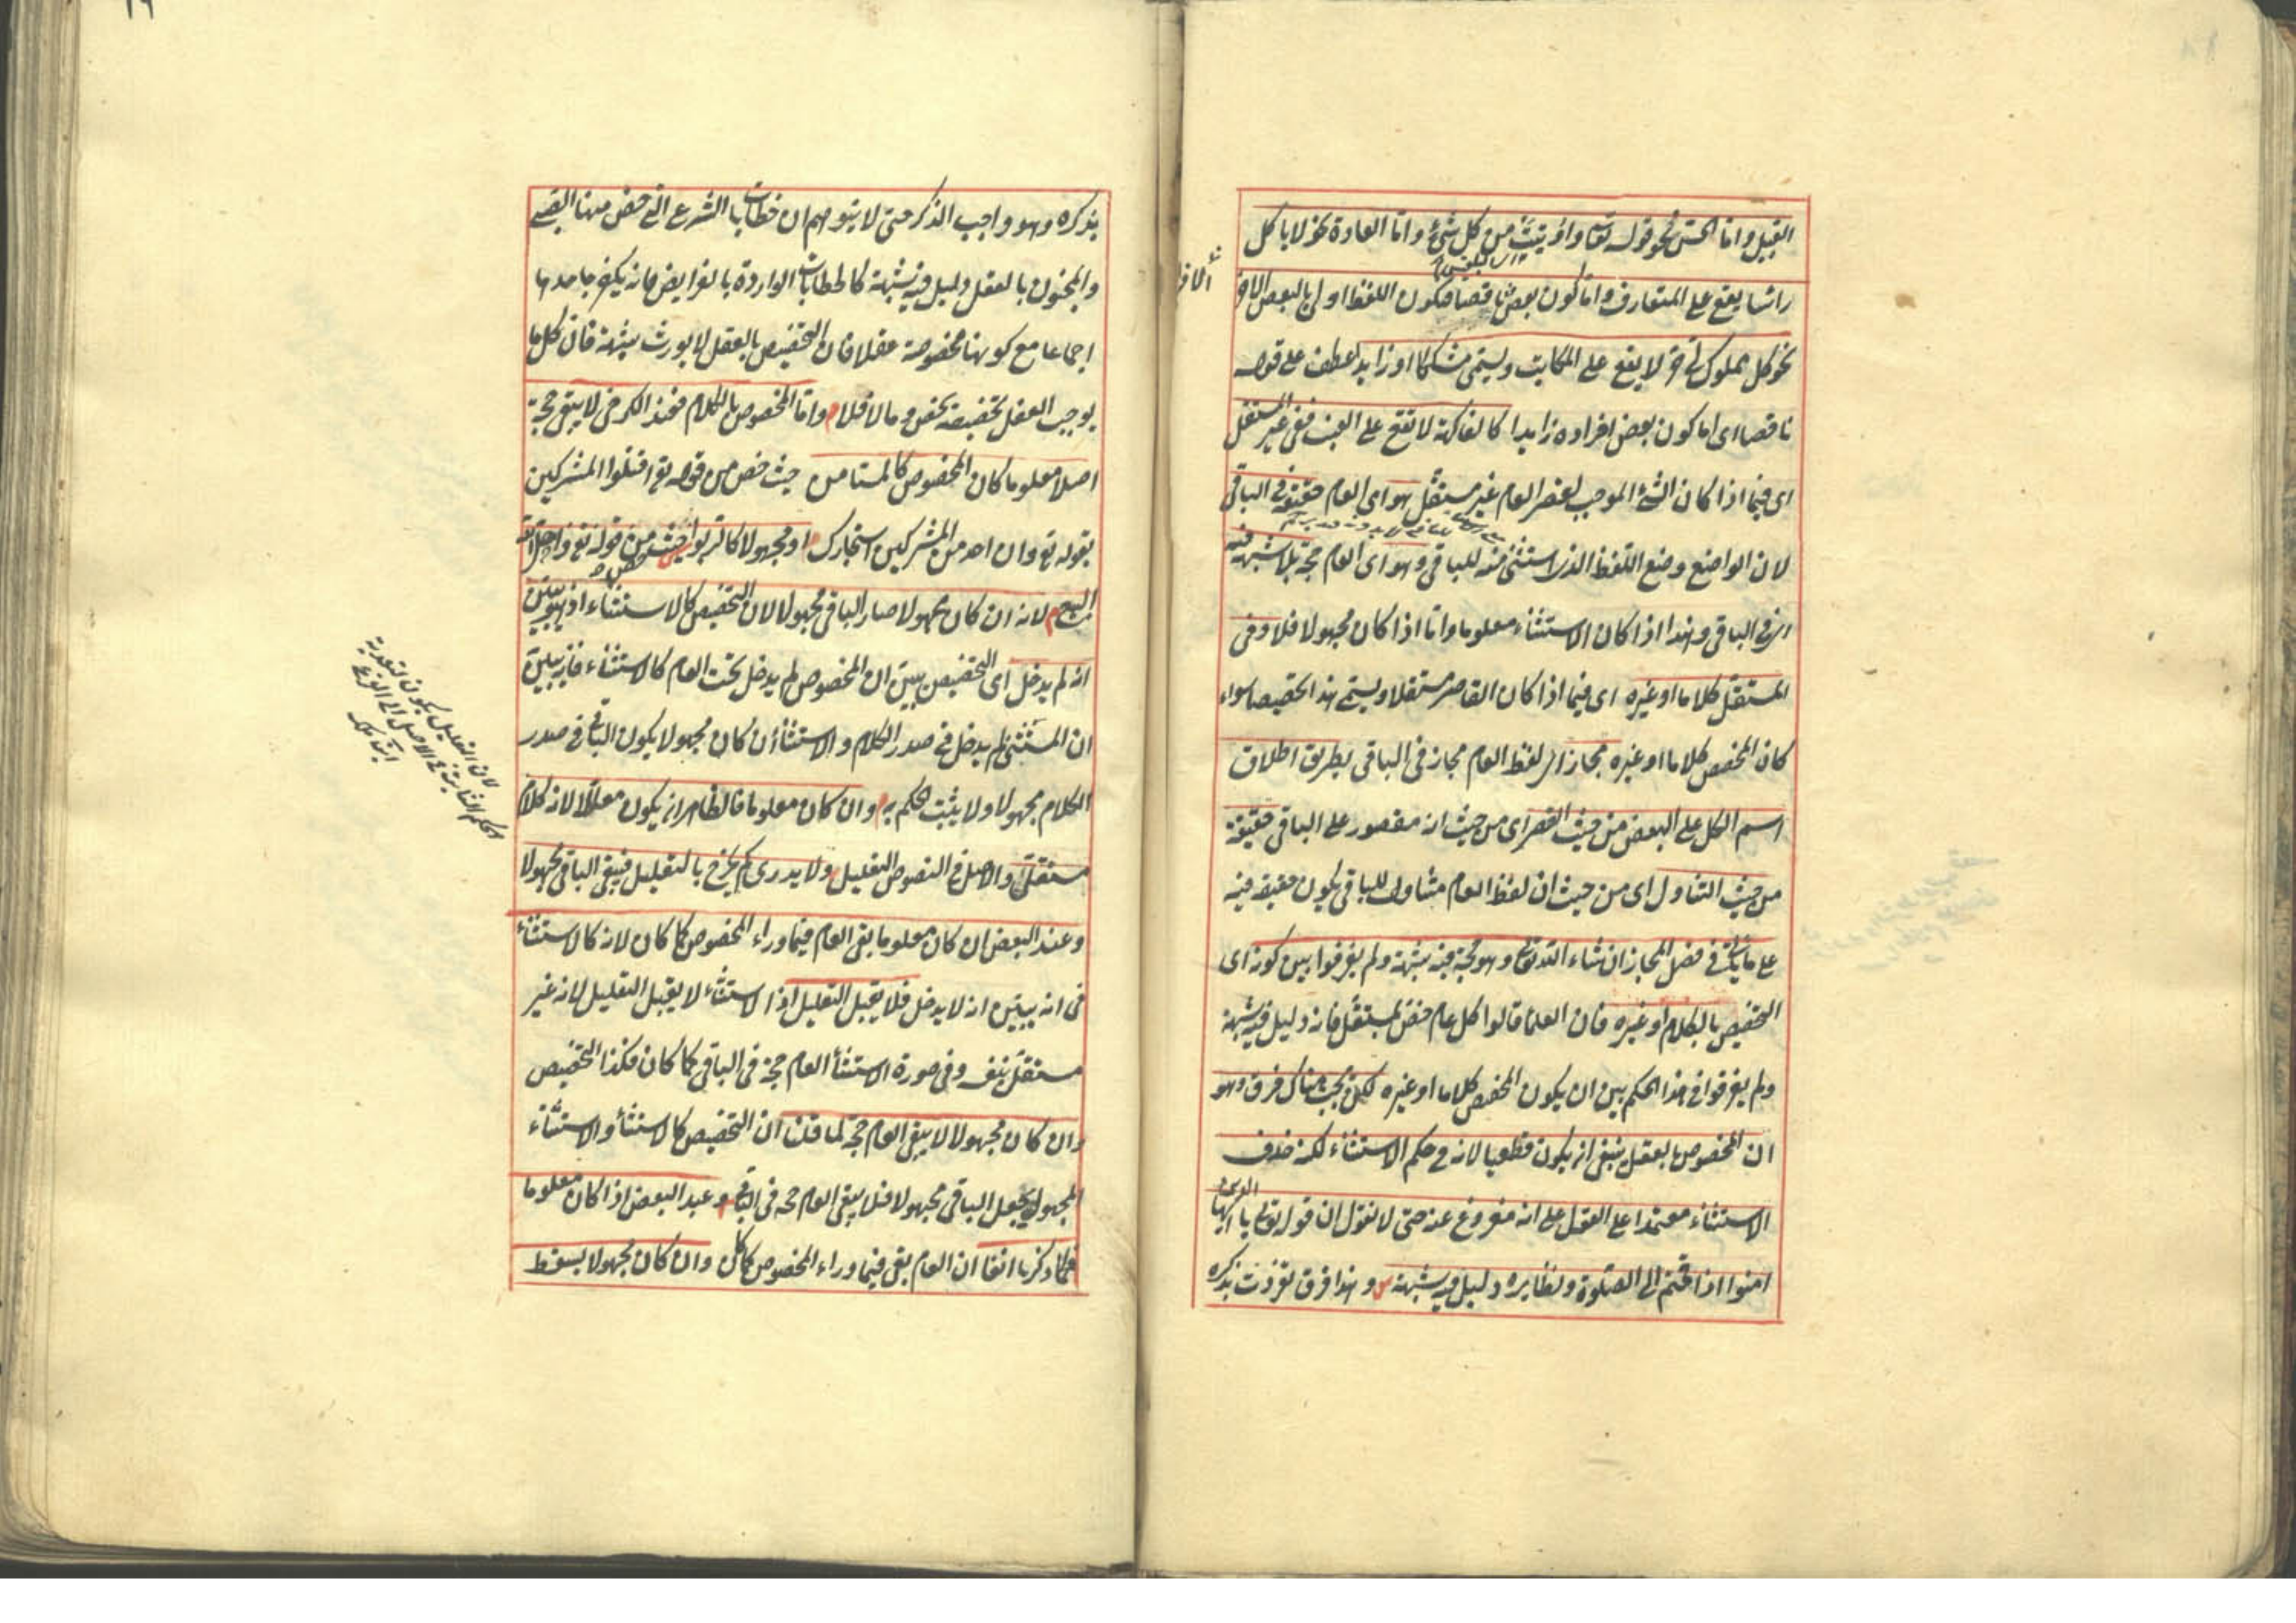 القبيل واما الحس نحو قوله تعا واوتيت من كل شئ واما العادة نحو لا ياكل
راسا يقع على المتعارف واما كون بعض ناقصا فيكون اللفظ اولى بالبعض الاخر
نحو كل مملوك لى حر لا يقع على المكاتب ويسمى مشككا او زايد اعطف على قوله
ناقصا اى اما كون بعض افراده زايدا كالفاكهة لا تقع على العنب ففى غير المستقل
اى فيما اذا كان الشئ الموجب لقصر العام غير مستقل هو اى العام حقيقة فى الباقى
لان الواضع وضع اللفظ الذى استثنى منه للباقى وهو اى العام حجة بلا شبهة فيه
اى فى الباقى وهذا اذا كان الاستثناء معلوما واما اذا كان مجهولا فلا وفى
المستقل كلاما او غيره اى فيما اذا كان القاصر مستقلا ويسمى هذا تخصيصا سواء
كان المخصص كلاما او غيره مجاز اى لفظ العام مجاز فى الباقى بطريق اطلاق
اسم الكل على البعض من حيث القصر اى من حيث انه مقصور على الباقى حقيقة
من حيث التناول اى من حيث ان لفظ العام متناول للباقى يكون حقيقة فيه
على ما ياتى فى فصل المجاز ان شاء الله تعالى وهو حجة فيه شبهة ولم يفرقوا بين كونه اى
التخصيص بالكلام او غيره فان العلماء قالوا كل عام خص بمستقل فانه دليل فيه شبهة
ولم يفرقوا فى هذا الحكم بين ان يكون المخصص كلاما او غيره لكن يجب هناك فرق وهو
ان المخصوص بالعقل ينبغى ان يكون قطعيا لانه فى حكم الاستثناء لكنه حذف
الاستثناء معتمدا على العقل على انه مفروغ عنه حتى لا نقول ان قوله تعالى يا ايها الذين
امنوا اذا قمتم الى الصلوة ونظايره دليل فيه شبهة وهذا فرق تفردت بذكره
بذكره وهو واجب الذكر حتى لا يتوهم ان خطابات الشرع التى خص منها الصبى
والمجنون بالعقل دليل فيه شبهة كالخطابات الواردة بالفرايض فانه يكفر جاحدها
اجماعا مع كونها مخصوصة عقلا فان التخصيص بالعقل لا يورث شبهة فان كل ما
يوجب العقل تخصيصه يخص وما لا فلا واما المخصوص بالكلام فعند الكرخى لا يبقى حجة
اصلا معلوما كان المخصوص كالمستامن حيث خص من قوله تع اقتلوا المشركين
بقوله تع وان احد من المشركين استجارك او مجهولا كالربوا حيث خص من قوله تع واحل الله
البيع لانه ان كان مجهولا صار الباقى مجهولا لان التخصيص كالاستثناء اذ هو يبين
انه لم يدخل اى التخصيص يبين ان المخصوص لم يدخل تحت العام كالاستثناء فانه يبين
ان المستثنى لم يدخل فى صدر الكلام والاستثناء ان كان مجهولا يكون الباقى فى صدر
الكلام مجهولا ولا يثبت الحكم به وان كان معلوما فالظاهر ان يكون معللا لانه كلام
مستقل والاصل فى النصوص التعليل ولا يدرى كم يخرج بالتعليل فيبقى الباقى مجهولا
وعند البعض ان كان معلوما بقى العام فيما وراء المخصوص كما كان لانه كالاستثناء
فى انه يبين انه لا يدخل فلا يقبل التعليل اذ الاستثناء لا يقبل التعليل لانه غير
مستقل بنفسه وفى صورة الاستثناء العام حجة فى الباقى كما كان فكذا التخصيص
وان كان مجهولا لا يبقى العام حجة لما قلنا ان التخصيص كالاستثناء والاستثناء
المجهول يجعل الباقى مجهولا فلا يبقى العام حجة فى الباقى وعند البعض اذا كان معلوما
فكما ذكرنا انفا ان العام بقى فيما وراء المخصوص كما كان وان كان مجهولا يسقط
لان التعليل يكون لتعدية
الحكم الثابت فى الاصل الى الفرع